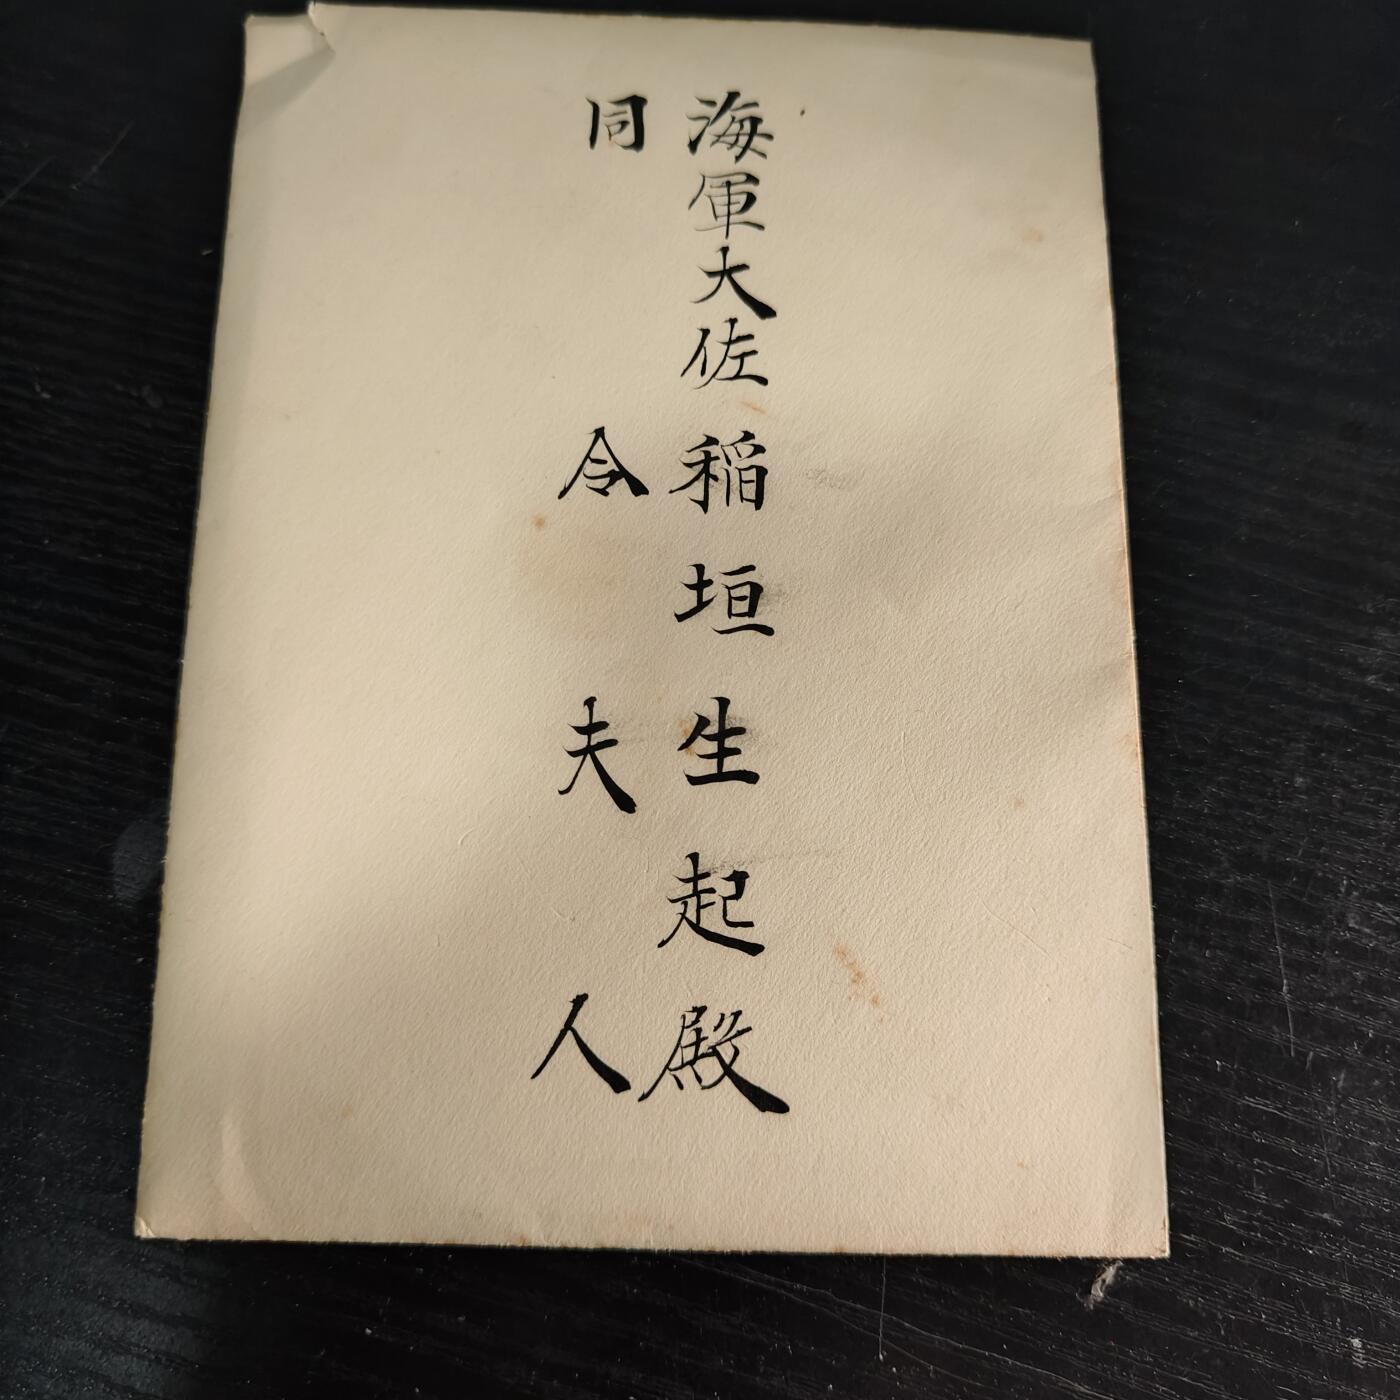 海軍大佐稲垣生起殿
同令夫人